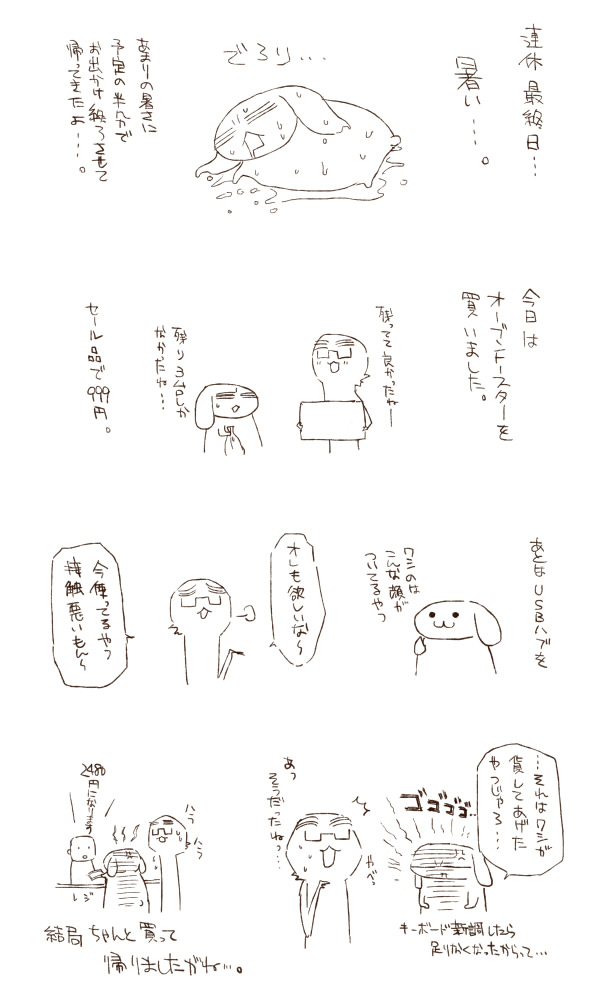 連休最終日…
暑い…。
でろり…
あまりの暑さに
予定の半分で
お出かけ終ろさせて
帰ってきたよ…。
今日は
オーブントースターを
買いました。
残ってて良かったねー
残り3台しか
なかったね…
セール品で999円。
あとはUSBハブを
ワシのは
こんな顔が
ついてるやつ
オレも欲しいなら
今使ってるやつ
接触悪いもんら
…それはワシが
貸してあげた
やつじゃろ…
ゴゴゴゴ…
キーボード新調したら
足りなくなったからって…
やべっ
あっ
そうだったねっ…
ハラ
ハラ
2480円になります
レジ
結局ちゃんと買って
帰りましたがね…。